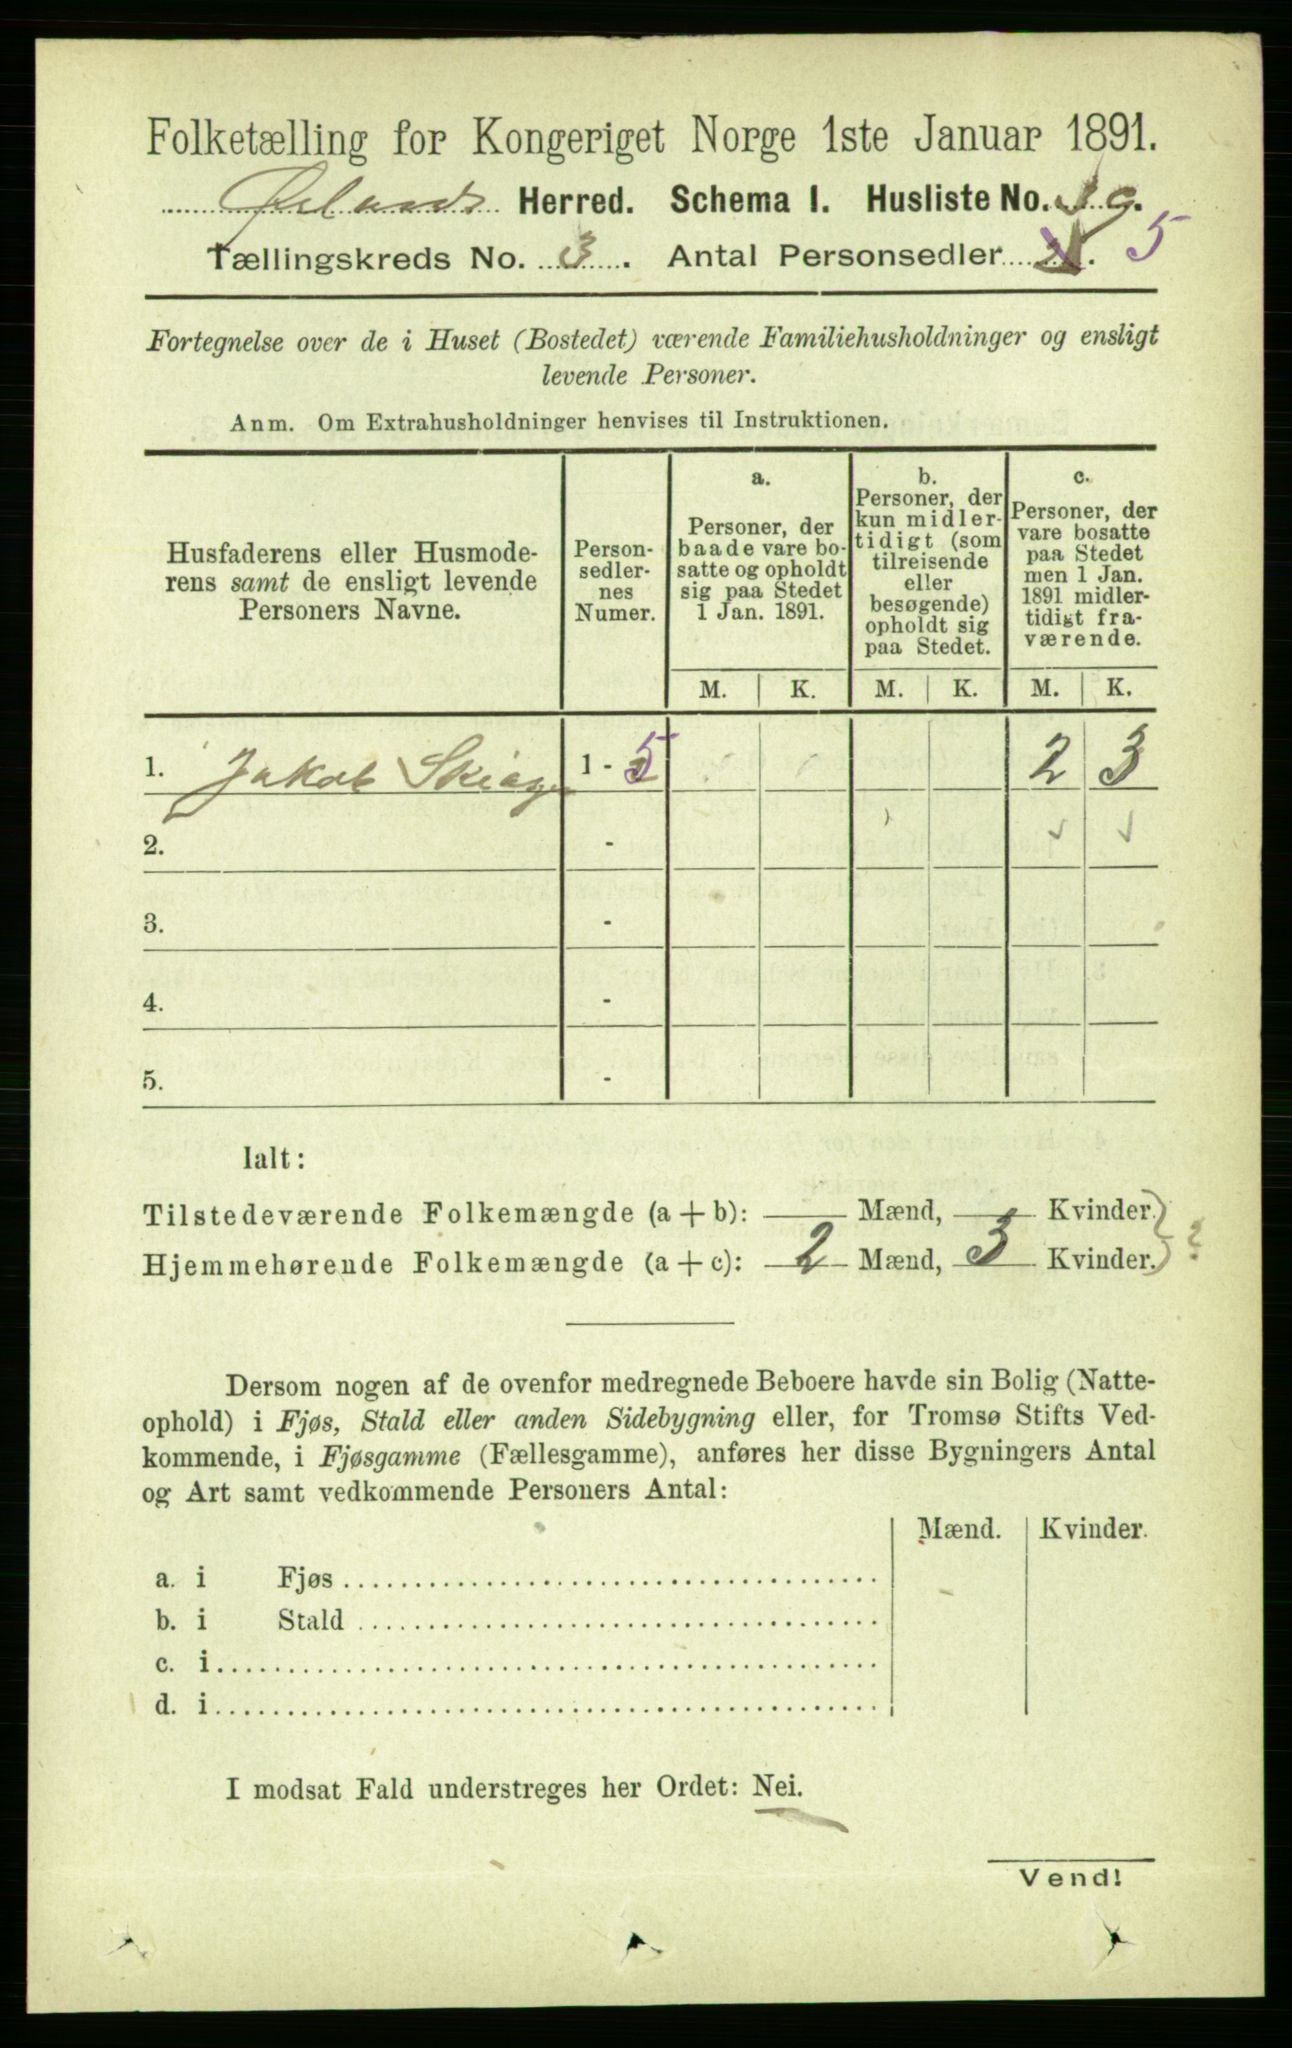 Folketælling for Kongeriget Norge 1ste Januar 1891.
Ørlands Herred. Schema I. Husliste No. 
Tællingskreds No. 3. Antal Personsedler 5
Fortegnelse over de i Huset (Bostedet) værende Familiehusholdninger og ensligt
levende Personer.
Anm. Om Extrahusholdninger henvises til Instruktionen.
Husfaderens eller Husmode-
rens samt de ensligt levende
Personers Navne.
Person-
sedler-
nes
Numer.
a.
Personer, der
baade vare bo-
satte og opholdt
sig paa Stedet
1 Jan. 1891.
b.
Personer, der
kun midler-
tidigt (som
tilreisende
eller
besøgende)
opholdt sig
paa Stedet.
c.
Personer, der
vare bosatte
paa Stedet
men 1 Jan.
1891 midler-
tidigt fra-
værende.
M. K. M. K. M. K.
1. Jakob 1 - 5 2 3
2. -
3. -
4. -
5. -
Ialt:
Tilstedeværende Folkemængde (a + b): Mænd, Kvinder.
Hjemmehørende Folkemængde (a + c): 2 Mænd, 3 Kvinder. ?
Dersom nogen af de ovenfor medregnede Beboere havde sin Bolig (Natte-
ophold) i Fjøs, Stald eller anden Sidebygning eller, for Tromsø Stifts Ved-
kommende, i Fjøsgamme (Fællesgamme), anføres her disse Bygningers Antal
og Art samt vedkommende Personers Antal:
Mænd. Kvinder.
a. i Fjøs
b. i Stald
c. i
d. i
I modsat Fald understreges her Ordet: Nei.
Vend!